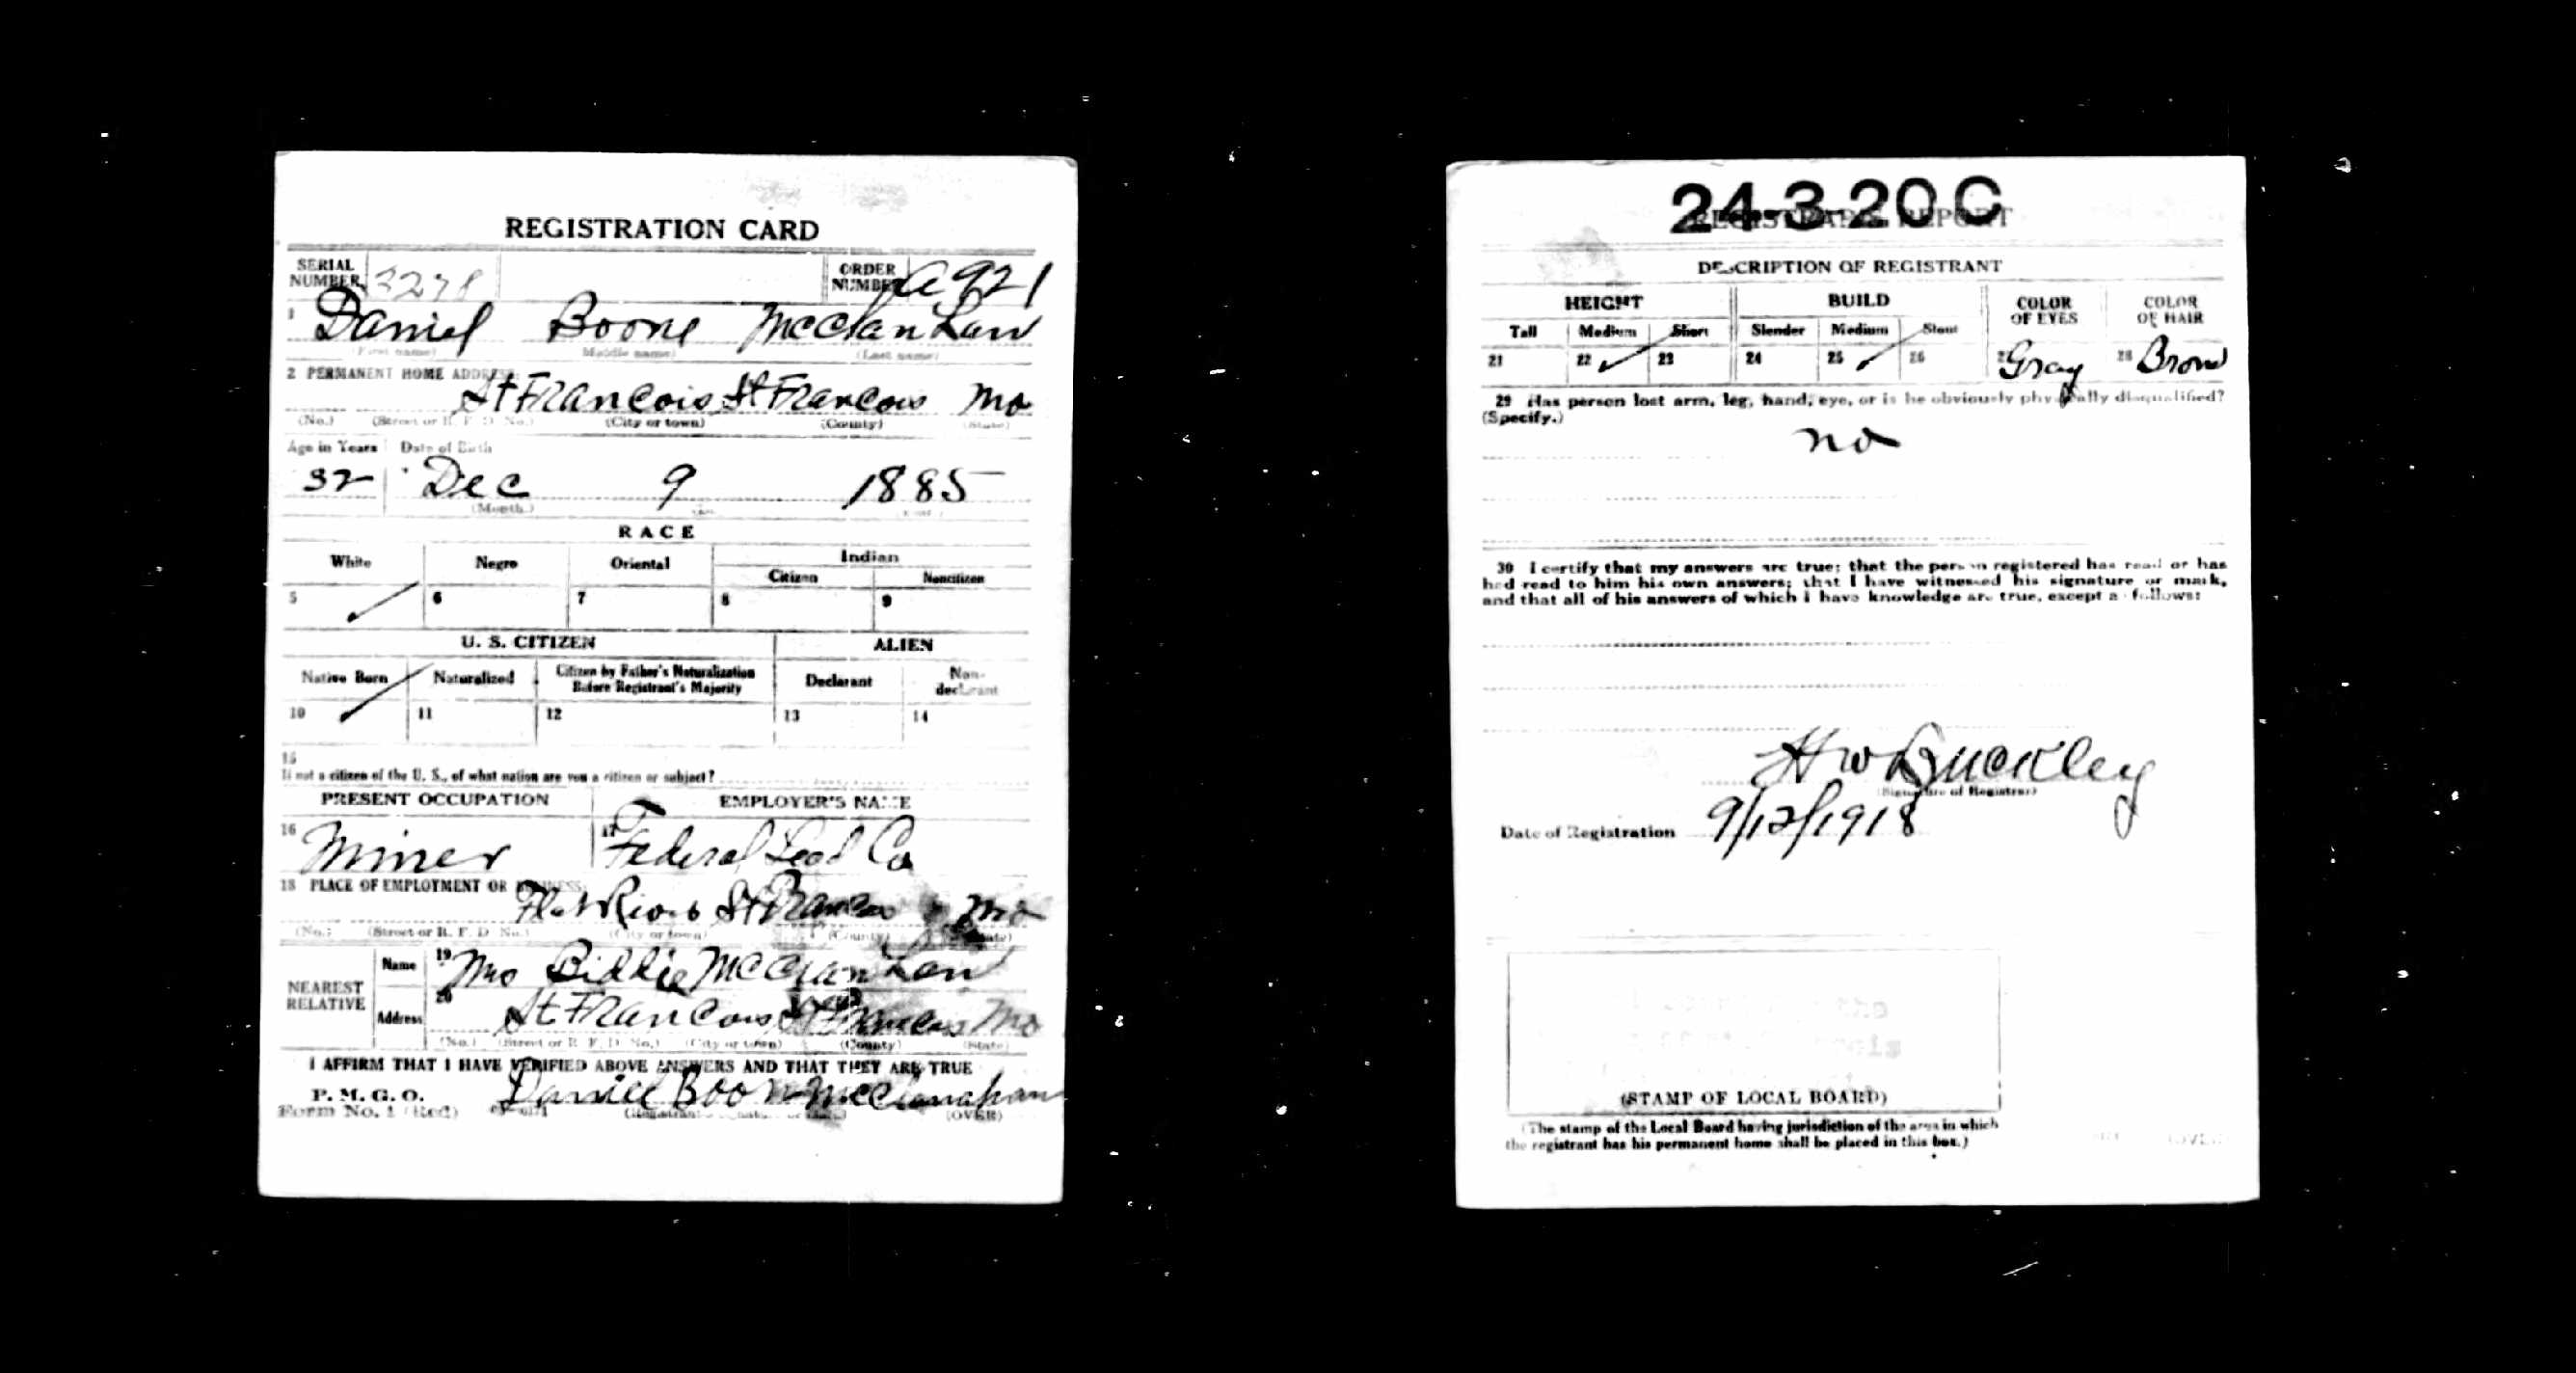 REGISTRATION CARD
SERIAL NUMBER 3278 ORDER NUMBER A 921
1 Daniel Boone McClan Law
(First name) (Middle name) (Last name)
2 PERMANENT HOME ADDRESS:
St Francois St Francois Mo
(No.) (Street or R. F. D. No.) (City or town) (County) (State)
Age in Years Date of Birth
32 Dec 9 1885
(Month.)
RACE
White Negro Oriental Indian
Citizen Noncitizen
5 6 7 8 9
U. S. CITIZEN ALIEN
Native Born Naturalized Citizen by Father's Naturalization Before Registrant's Majority Declarant Non-declarant
10 11 12 13 14
15
If not a citizen of the U. S., of what nation are you a citizen or subject?
PRESENT OCCUPATION EMPLOYER'S NAME
16 Miner 17 Federal Lead Co
18 PLACE OF EMPLOYMENT OR BUSINESS:
Flat River St Francois Mo
(No.) (Street or R. F. D. No.) (City or town) (County) (State)
NEAREST RELATIVE
Name 19 Mrs Biddie McClan Law
Address 20 St Francois St Francois Mo
(No.) (Street or R. F. D. No.) (City or town) (County) (State)
I AFFIRM THAT I HAVE VERIFIED ABOVE ANSWERS AND THAT THEY ARE TRUE
P. M. G. O.
Form No. 1 (Red) Daniel Boon McClanahan (OVER)
24-3-20 C
REGISTRAR'S REPORT
DESCRIPTION OF REGISTRANT
HEIGHT BUILD COLOR OF EYES COLOR OF HAIR
Tall Medium Short Slender Medium Stout
21 22 23 24 25 26 27 Gray 28 Brown
29 Has person lost arm, leg, hand, eye, or is he obviously physically disqualified?
(Specify.)
no
30 I certify that my answers are true; that the person registered has read or has
had read to him his own answers; that I have witnessed his signature or mark,
and that all of his answers of which I have knowledge are true, except as follows:
H W Buckley
(Signature of Registrar)
Date of Registration 9/12/1918
(STAMP OF LOCAL BOARD)
(The stamp of the Local Board having jurisdiction of the area in which
the registrant has his permanent home shall be placed in this box.)
(OVER)